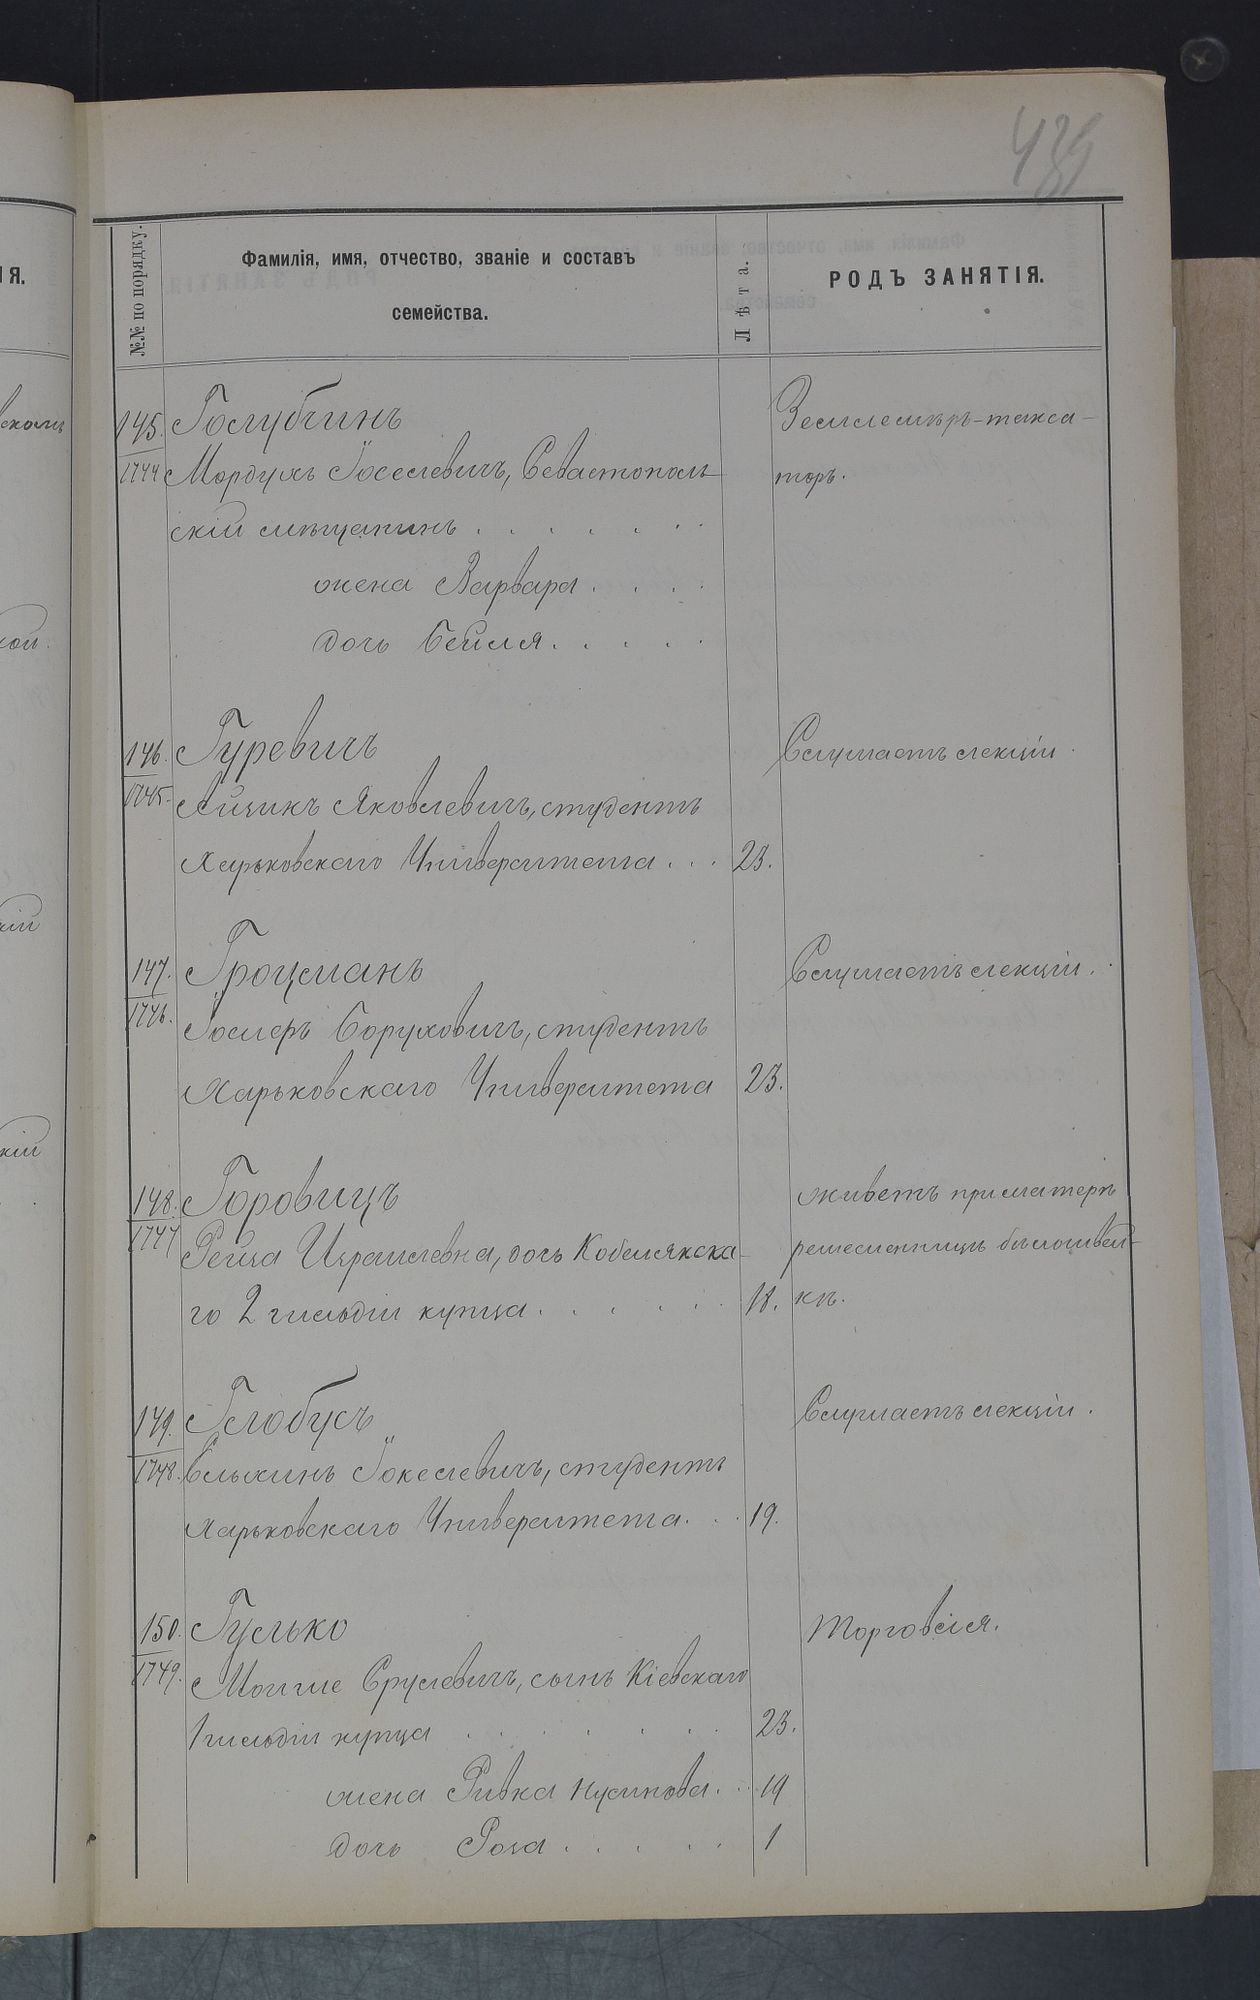 439
№№ по порядку.
Фамилія, имя, отчество, званіе и составъ
семейства.
Лѣта.
РОДЪ ЗАНЯТІЯ.
145. Голубчинъ
Землемѣръ-такса-
1744 Мордухъ Іоселевичъ, Севастополь-
торъ.
скій мѣщанинъ
жена Варвара
дочь Бейля
146. Гуревичъ
Слушаетъ лекціи
1745. Айзикъ Яковлевичъ, студентъ
Харьковскаго Университета 23.
147. Гроцманъ
Слушаетъ лекціи.
1746. Боруховичъ, студентъ
Харьковскаго Университета 23.
148. Горовицъ
живетъ при матери
1747 Рейза Израилевна, дочь Кобелякска-
ремесленницѣ бѣлошвей-
го 2 гильдіи купца 18.
кѣ.
149. Глобусъ
Слушаетъ лекціи.
1748. Іокелевичъ, студентъ
Харьковскаго Университета. 19.
150. Гулько
Торговля.
1749. Мошше Срулевичъ, сынъ Кіевскаго
1 гильдіи купца 23.
жена Ривка Нусинова 19
дочь Роза 1
ІЯ.
скій
скій